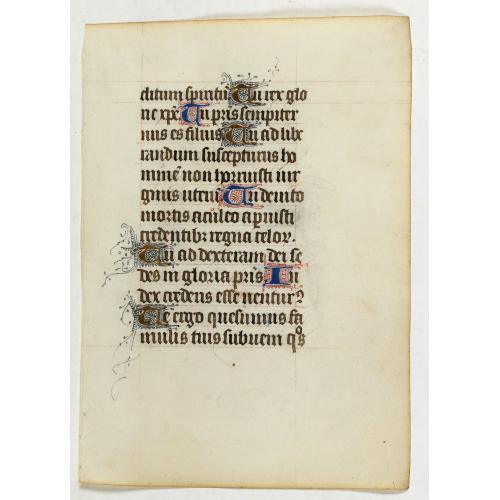 clitum spiritū Tu rex glo
rie xpē Tu pris sempiter
nus es filius Tu ad libe
randum suscepturus ho
minē non horruisti uir
ginis uterū Tu deuicto
mortis aculeo aperuisti
credentibꝫ regna celoꝝ.
Tu ad dexteram dei se
des in gloria pris Iu
dex crederis esse uenturꝰ
Te ergo quesumus fa
mulis tuis subueni qͦs